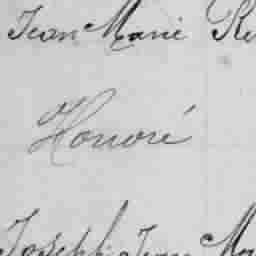 Jean Marie
Honoré
Joseph Jean